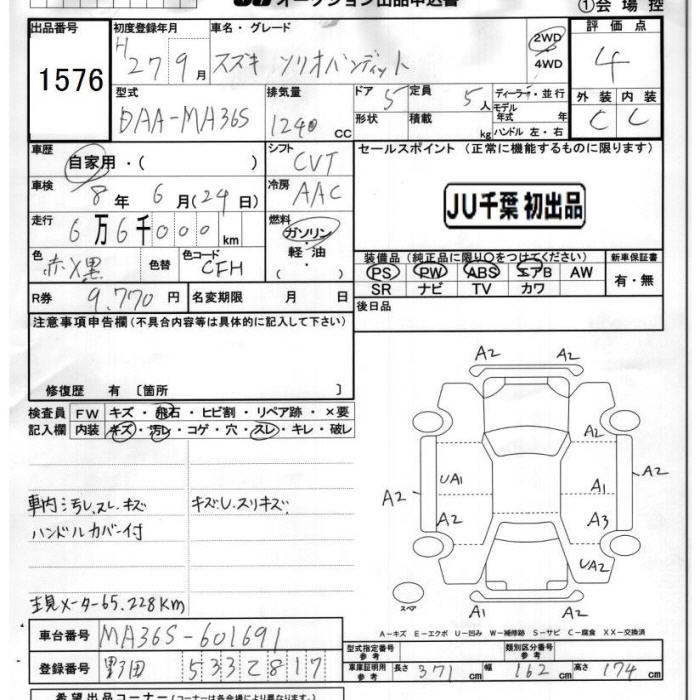 オークション出品申込書
①会場控
出品番号
1576
初度登録年月
H 27 9月
車名・グレード
スズキ ソリオバンディット
2WD
4WD
評価点
4
型式
DAA-MA36S
排気量
1240 cc
ドア 5
定員 5人
形状
積載 kg
ディーラー・並行
モデル年式 年
ハンドル 左・右
外装 内装
C C
車歴
自家用・( )
シフト
CVT
セールスポイント (正常に機能するものに限ります)
JU千葉 初出品
車検
8年 6月(24日)
冷房
AAC
走行
6万6千000km
燃料
ガソリン・軽油・( )
色
赤X黒
色替
色コード
CFH
装備品(純正品に限り〇をつけてください)
PS PW ABS エアB AW
SR ナビ TV カワ
新車保証書
有・無
R券 9,770円
名変期限 月 日
後日品
注意事項申告欄(不具合内容等は具体的に記入して下さい)
修復歴 有 〔箇所 〕
検査員記入欄
FW キズ・飛石・ヒビ割・リペア跡・×要
内装 キズ・汚レ・コゲ・穴・スレ・キレ・破レ
車内汚レ.スレ.キズ
キズU.スリキズ
ハンドルカバー付
主見メーター65.228Km
A2 A2
A2
A2 UA1 A1 A2
A2 A3
UA2
スペア
A1 A2
A-キズ E-エクボ U-凹み W-補修跡 S-サビ C-腐食 XX-交換済
車台番号 MA36S-601691
登録番号 野田 533 と 2817
型式指定番号 参考
類別区分番号 参考
車庫証明用 参考
長さ 371cm 幅 162cm 高さ 174cm
希望出品コーナー(コーナーは各会場により異なります)